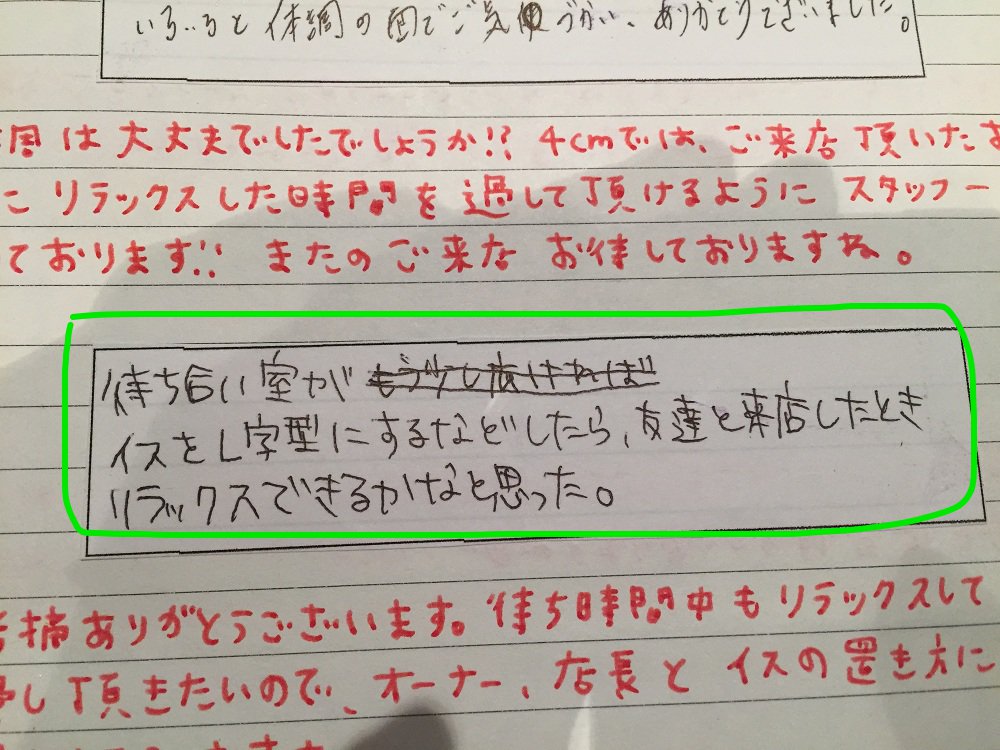 いろいろと体調の面でご気づかい、ありがとうございました。
周は大丈夫でしたでしょうか!? 4cmでは、ご来店頂いたお
にリラックスした時間を過して頂けるようにスタッフ一
ております!! またのご来店お待しておりますね。
待ち合い室が
イスをL字型にするなどしたら、友達と来店したとき
リラックスできるかなと思った。
指摘ありがとうございます。待ち時間中もリラックスして
過し頂きたいので、オーナー、店長とイスの置き方に